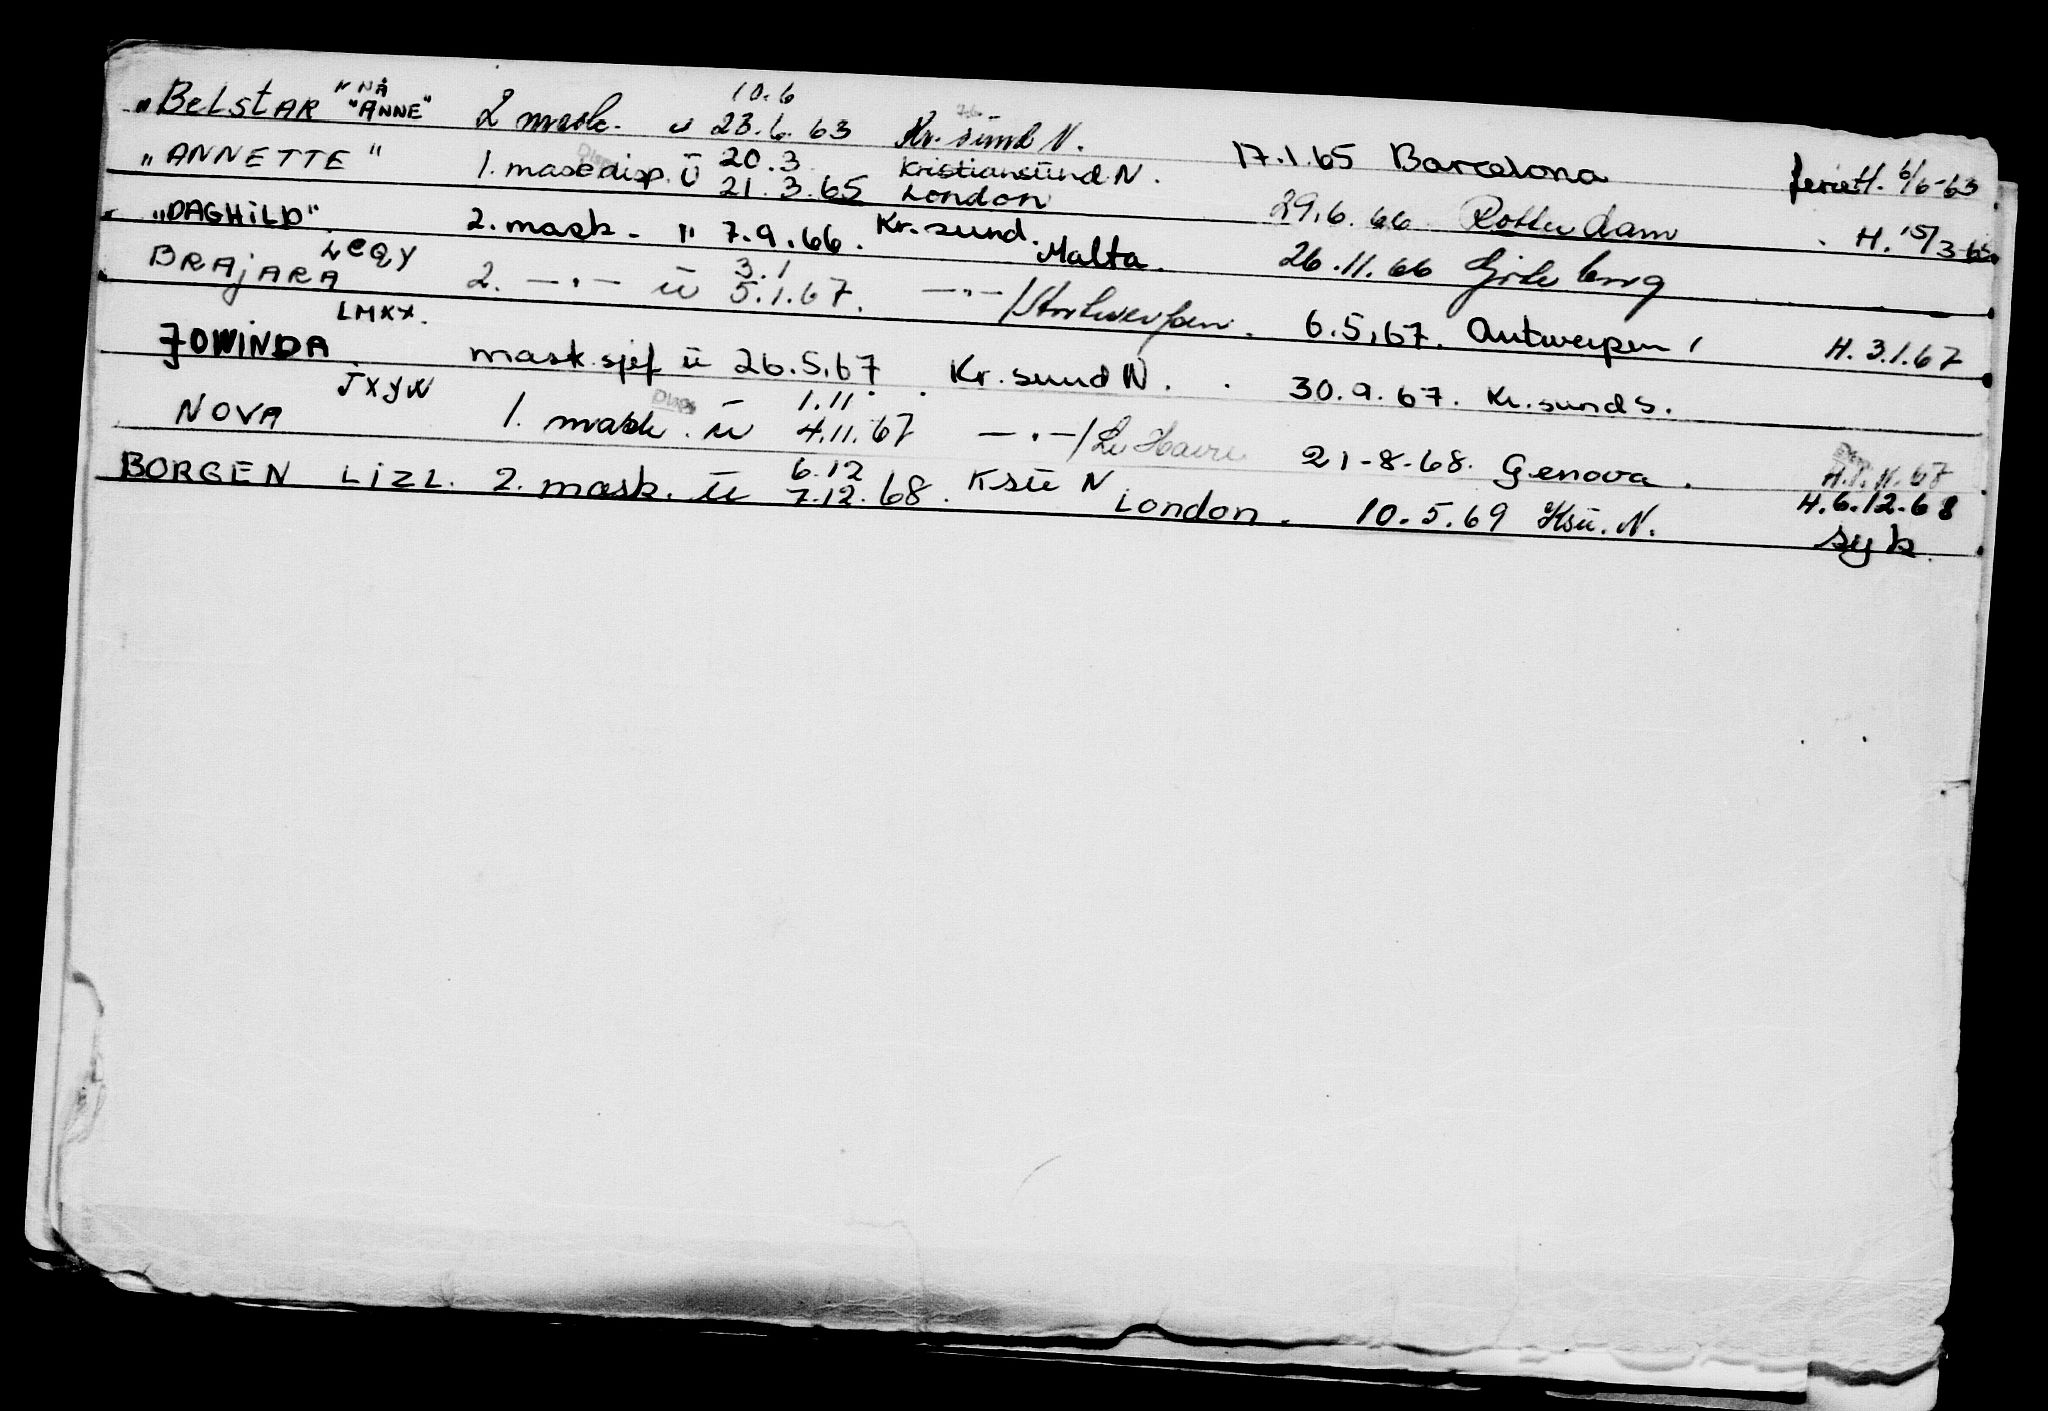 „BelstAR" NÅ "ANNE" 2 mask. ü 10.6 23.6.63 Kr.sünd N. 17.1.65 Barcelona feriet H. 6/6-63
„ANNETTE" 1. mask disp. Ü 20.3 21.3.65 Kristiansünd N. London 29.6.66 Rotterdam H. 15/3-65
„DAGHILD". 2. mask. " 7.9.66. Kr.sund. Malta. 26.11.66 Göteborg
BRAJARA LCQY 2. —"— ü 3.1 5.1.67. —"—/Antwerpen. 6.5.67. Antwerpen H. 3.1.67
JOWINDA LMKX. mask.sjef ü 26.5.67 Kr.sund N. 30.9.67. Kr.sund S.
NOVA JXYN 1. mask. ü 1.11 4.11.67 —"—/Le Havre 21-8-68. Genova. H.1.11.67
BORGEN LIZL. 2. mask. ü 6.12 7.12.68. Ksü N London. 10.5.69 Ksü. N. H.6.12.68 syk.